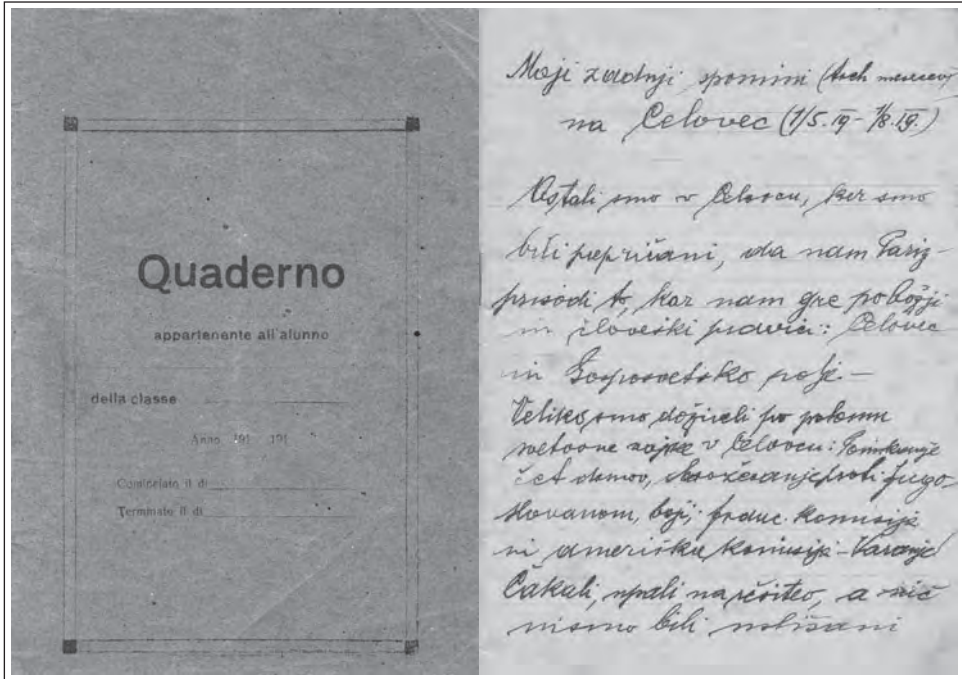 Quaderno
appartenente all'alunno
della classe
Anno 191 191
Cominciato il di
Terminato il di
Moji zadnji spomini (treh mesecev)
na Celovec (1/5.19 - 1/8.19.)
Ostali smo v Celovcu, ker smo
bili prepričani, da nam Pariz
prisodi to, kar nam gre po božji
in človeški pravici: Celovec
in Gosposvetsko polje. —
Veliko smo doživeli po polomu
svetovne vojne v Celovcu:
čet domov, oboroževanje proti Jugo-
slovanom, boji, franc. komisija
in ameriška komisija -
Čakali, upali na rešitev, a nič
nismo bili uslišani